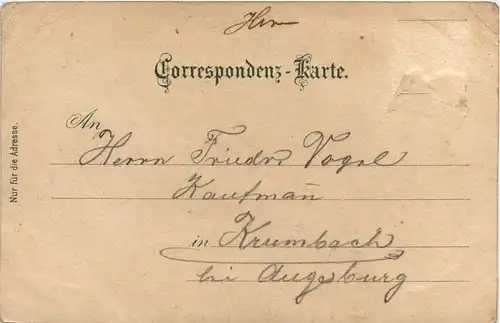 Herr
Correspondenz-Karte.
An
Herrn Friedr. Vogel
Kaufmañ
in Krumbach
bei Augsburg
Nur für die Adresse.